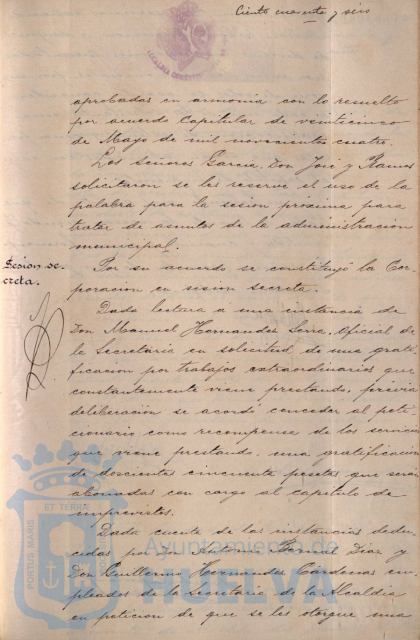 Ciento cuarenta y seis
aprobadas en armonía con lo resuelto
por acuerdo Capitular de veinticinco
de Mayo de mil novecientos cuatro.
Los Señores García, Don José y Ramos
solicitaron se les reserve el uso de la
palabra para la sesion próxima para
tratar de asuntos de la administracion
municipal.
Sesion se-
creta.
Por su acuerdo se constituyó la Cor-
poracion en sesion secreta.
Dada lectura á una instancia de
Don Manuel Hernandez Serra, Oficial de
la Secretaria en solicitud de una grati-
ficacion por trabajos extraordinarios que
constantemente viene prestando, previa
deliberación se acordó conceder al peti-
cionario como recompensa de los servicios
que viene prestando, una gratificacion
de doscientas cincuenta pesetas que serán
abonadas con cargo al capitulo de
imprevistos.
Dada cuenta de las instancias dedu-
cidas por Don Antonio Diaz y
Don Guillermo Hernandez Cárdenas em-
pleados de la Secretaria de la Alcaldía
en peticion de que se les otorgue una
PORTUS MARIS ET TERRÆ
Ayuntamiento de
HUELVA